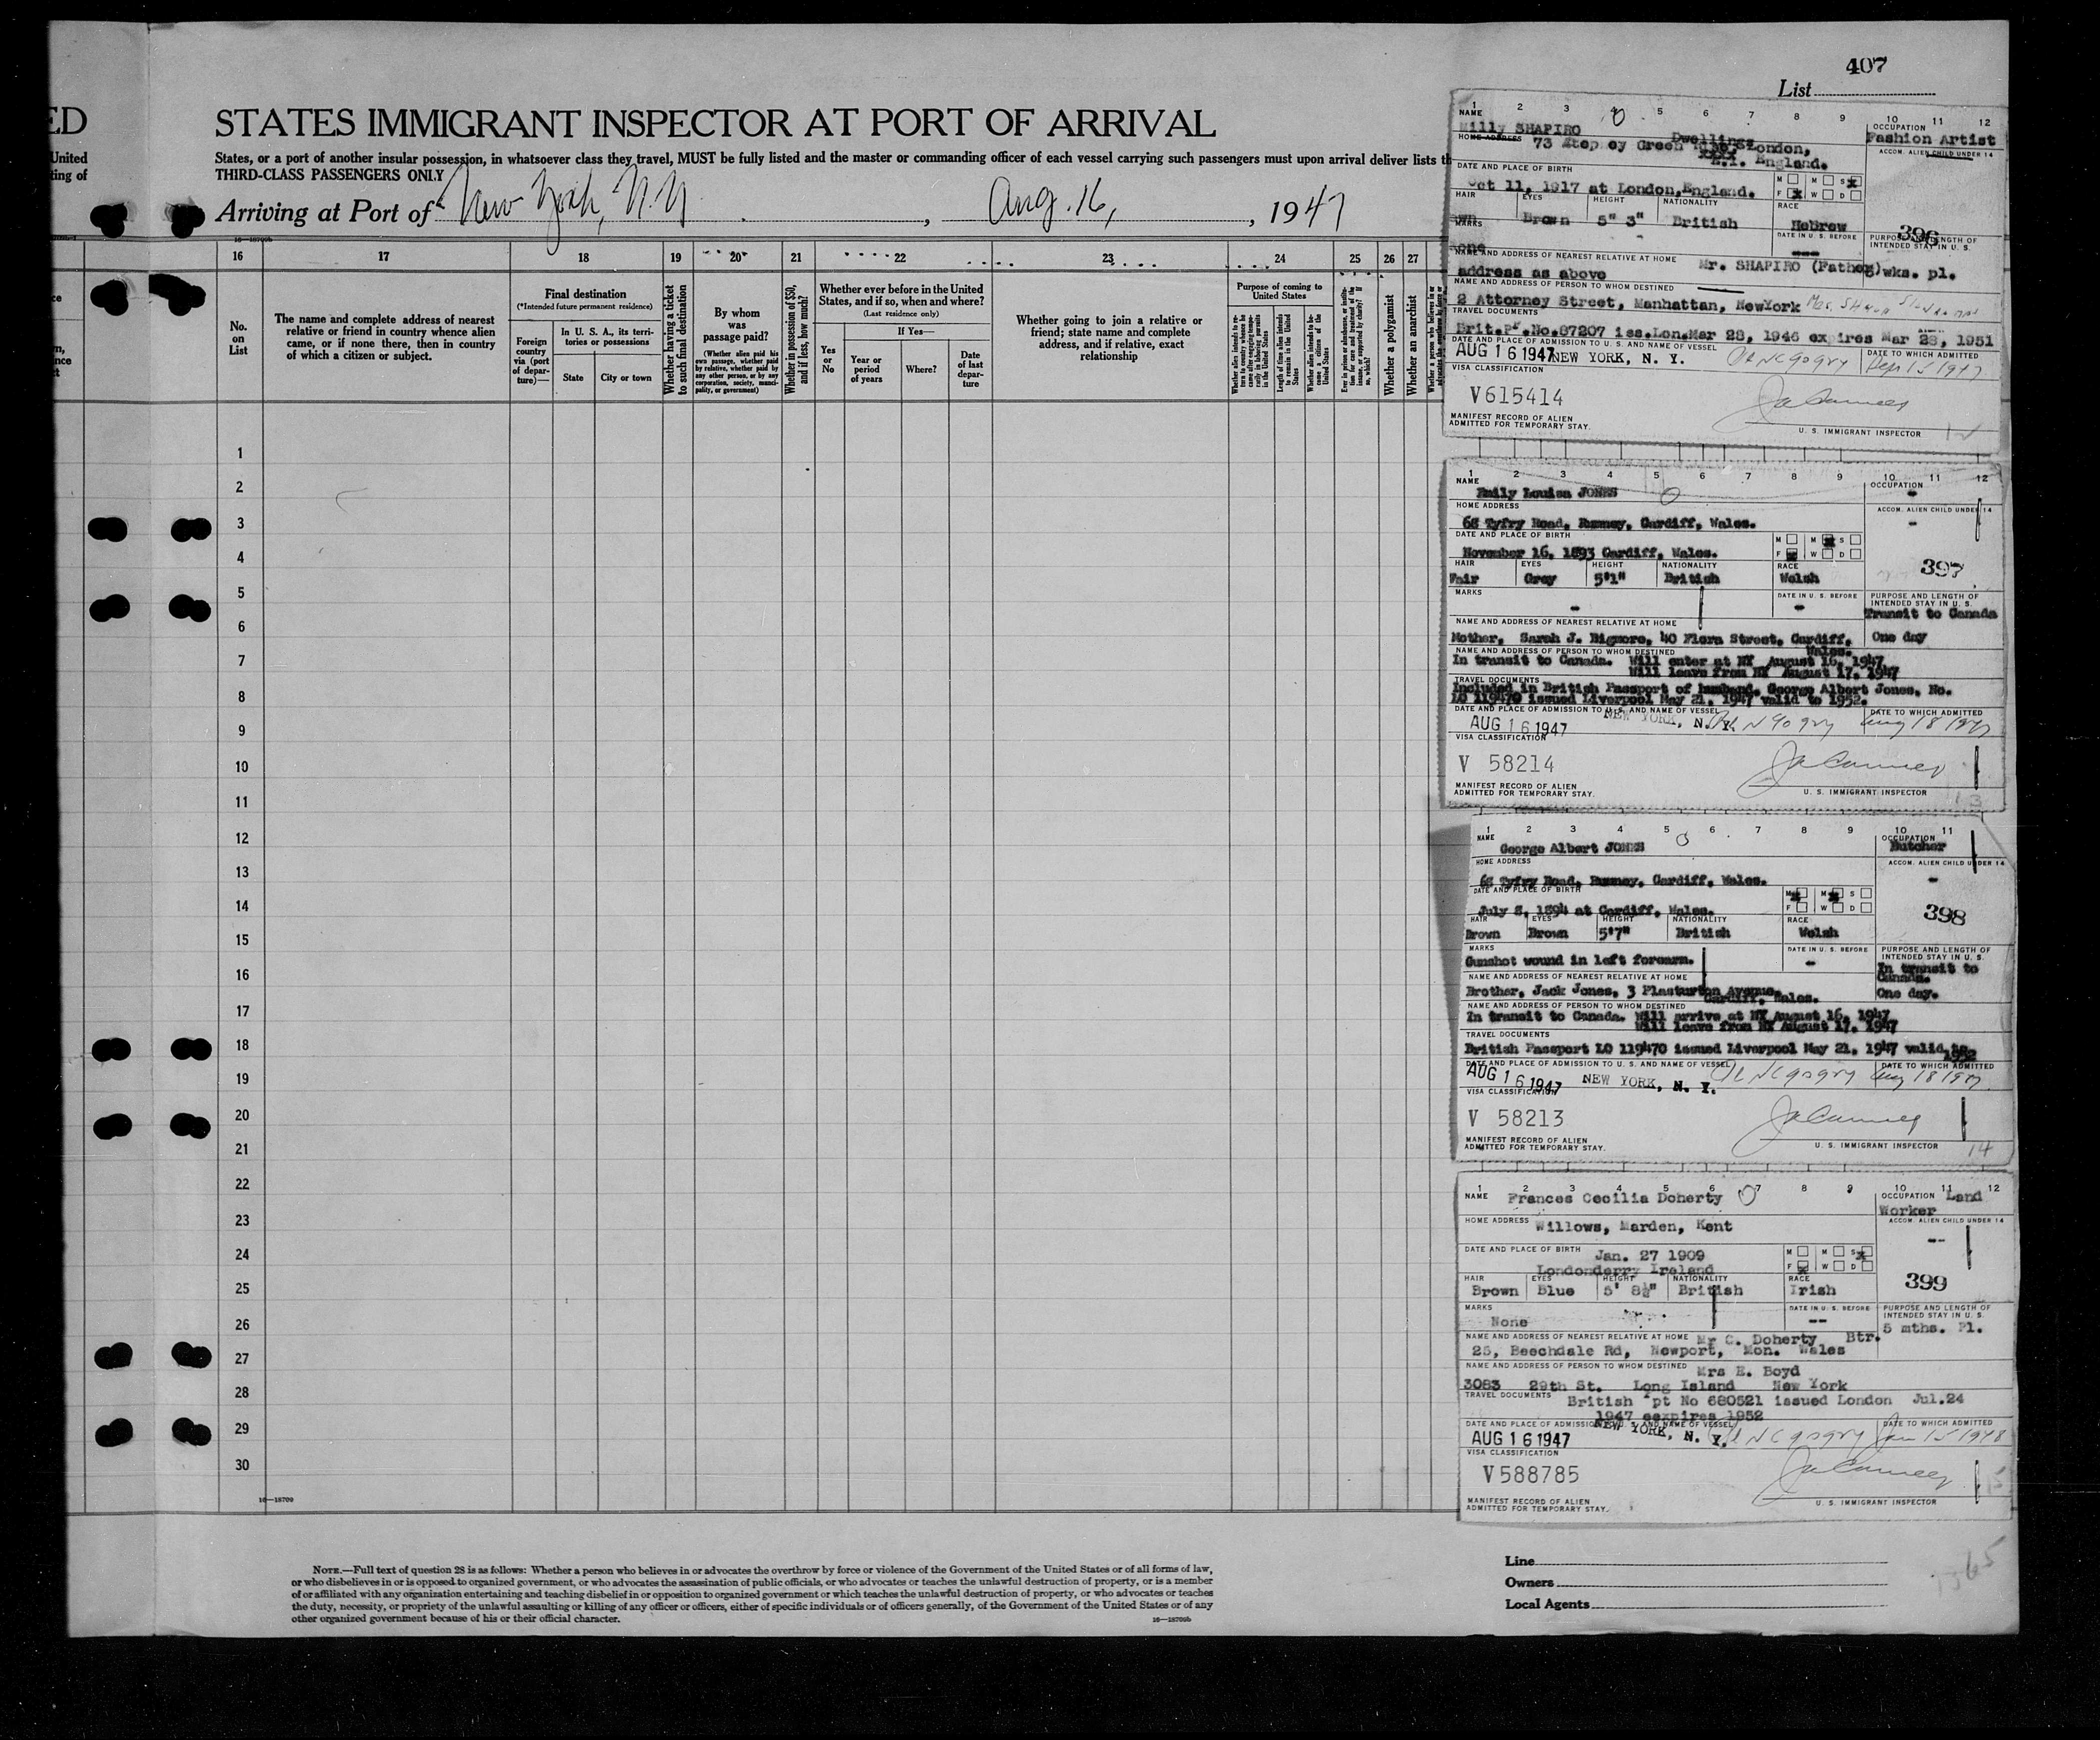 407
List
ED
STATES IMMIGRANT INSPECTOR AT PORT OF ARRIVAL
United
States, or a port of another insular possession, in whatsoever class they travel, MUST be fully listed and the master or commanding officer of each vessel carrying such passengers must upon arrival deliver lists th
ting of
THIRD-CLASS PASSENGERS ONLY
Arriving at Port of New York, N.Y. , Aug. 16, , 1947
16 17 18 19 20 21 22 23 24 25 26 27
No. on List
The name and complete address of nearest relative or friend in country whence alien came, or if none there, then in country of which a citizen or subject.
Final destination
(*Intended future permanent residence)
Foreign country via (port of departure)—
In U. S. A., its territories or possessions
State
City or town
Whether having a ticket to such final destination
By whom was passage paid?
(Whether alien paid his own passage, whether paid by relative, whether paid by any other person, or by any corporation, society, municipality, or government)
Whether in possession of $50, and if less, how much?
Whether ever before in the United States, and if so, when and where?
(Last residence only)
Yes or No
If Yes—
Year or period of years
Where?
Date of last departure
Whether going to join a relative or friend; state name and complete address, and if relative, exact relationship
Purpose of coming to United States
Length of time alien intends to remain in the United States
Whether a polygamist
Whether an anarchist
1
2
3
4
5
6
7
8
9
10
11
12
13
14
15
16
17
18
19
20
21
22
23
24
25
26
27
28
29
30
16—18709
NOTE.—Full text of question 28 is as follows: Whether a person who believes in or advocates the overthrow by force or violence of the Government of the United States or of all forms of law,
or who disbelieves in or is opposed to organized government, or who advocates the assassination of public officials, or who advocates or teaches the unlawful destruction of property, or is a member
of or affiliated with any organization entertaining and teaching disbelief in or opposition to organized government or which teaches the unlawful destruction of property, or who advocates or teaches
the duty, necessity, or propriety of the unlawful assaulting or killing of any officer or officers, either of specific individuals or of officers generally, of the Government of the United States or of any
other organized government because of his or their official character.
16—18709b
1 2 3 4 5 6 7 8 9 10 11 12
NAME
Milly SHAPIRO
OCCUPATION
Fashion Artist
HOME ADDRESS
73 Stepney Green Dwellings London,
E.1. England.
ACCOM. ALIEN CHILD UNDER 14
DATE AND PLACE OF BIRTH
Oct 11, 1917 at London,England.
M M S
F W D
HAIR EYES HEIGHT NATIONALITY RACE
Brown 5" 3" British Hebrew
396
MARKS
DATE IN U. S. BEFORE
PURPOSE AND LENGTH OF INTENDED STAY IN U. S.
NAME AND ADDRESS OF NEAREST RELATIVE AT HOME
Mr. SHAPIRO (Father) wks. pl.
address as above
NAME AND ADDRESS OF PERSON TO WHOM DESTINED
2 Attorney Street, Manhattan, NewYork
TRAVEL DOCUMENTS
Brit.Pt.No.87207 iss.Lon.Mar 28, 1946 expires Mar 28, 1951
DATE AND PLACE OF ADMISSION TO U. S. AND NAME OF VESSEL
DATE TO WHICH ADMITTED
AUG 16 1947 NEW YORK, N. Y. Sep 15 1947
VISA CLASSIFICATION
V615414
MANIFEST RECORD OF ALIEN
ADMITTED FOR TEMPORARY STAY.
U. S. IMMIGRANT INSPECTOR
1 2 3 4 5 6 7 8 9 10 11 12
NAME
Emily Louisa JONES
OCCUPATION
HOME ADDRESS
68 Tyfry Road, Rumney, Cardiff, Wales.
ACCOM. ALIEN CHILD UNDER 14
DATE AND PLACE OF BIRTH
November 16, 1893 Cardiff, Wales.
M M S
F W D
HAIR EYES HEIGHT NATIONALITY RACE
Fair Grey 5'1" British Welsh
397
MARKS
DATE IN U. S. BEFORE
PURPOSE AND LENGTH OF INTENDED STAY IN U. S.
Transit to Canada
One day
NAME AND ADDRESS OF NEAREST RELATIVE AT HOME
Mother, Sarah J. Bigmore, 40 Flora Street, Cardiff,
Wales.
NAME AND ADDRESS OF PERSON TO WHOM DESTINED
In transit to Canada. Will enter at NY August 16, 1947
Will leave from NY August 17, 1947
TRAVEL DOCUMENTS
Included in British Passport of husband, George Albert Jones, No.
LO 119470 issued Liverpool May 21, 1947 valid to 1952.
DATE AND PLACE OF ADMISSION TO U. S. AND NAME OF VESSEL
DATE TO WHICH ADMITTED
AUG 16 1947 NEW YORK, N. Y. Aug 18 1947
VISA CLASSIFICATION
V 58214
MANIFEST RECORD OF ALIEN
ADMITTED FOR TEMPORARY STAY.
U. S. IMMIGRANT INSPECTOR
13
1 2 3 4 5 6 7 8 9 10 11
NAME
George Albert JONES
OCCUPATION
Butcher
HOME ADDRESS
68 Tyfry Road, Rumney, Cardiff, Wales.
ACCOM. ALIEN CHILD UNDER 14
DATE AND PLACE OF BIRTH
July 8, 1894 at Cardiff, Wales.
M M S
F W D
HAIR EYES HEIGHT NATIONALITY RACE
Brown Brown 5'7" British Welsh
398
MARKS
Gunshot wound in left forearm.
DATE IN U. S. BEFORE
PURPOSE AND LENGTH OF INTENDED STAY IN U. S.
In transit to
Canada.
One day.
NAME AND ADDRESS OF NEAREST RELATIVE AT HOME
Brother, Jack Jones, 3 Plasturton Avenue,
Cardiff, Wales.
NAME AND ADDRESS OF PERSON TO WHOM DESTINED
In transit to Canada. Will arrive at NY August 16, 1947
Will leave from NY August 17, 1947
TRAVEL DOCUMENTS
British Passport LO 119470 issued Liverpool May 21, 1947 valid to
1952
DATE AND PLACE OF ADMISSION TO U. S. AND NAME OF VESSEL
DATE TO WHICH ADMITTED
AUG 16 1947 NEW YORK, N. Y. Aug 18 1947
VISA CLASSIFICATION
V 58213
MANIFEST RECORD OF ALIEN
ADMITTED FOR TEMPORARY STAY.
U. S. IMMIGRANT INSPECTOR
14
1 2 3 4 5 6 7 8 9 10 11 12
NAME
Frances Cecilia Doherty
OCCUPATION
Land
Worker
HOME ADDRESS
Willows, Marden, Kent
ACCOM. ALIEN CHILD UNDER 14
--
DATE AND PLACE OF BIRTH
Jan. 27 1909
Londonderry Ireland
M M S
F W D
HAIR EYES HEIGHT NATIONALITY RACE
Brown Blue 5' 8½" British Irish
399
MARKS
None
DATE IN U. S. BEFORE
--
PURPOSE AND LENGTH OF INTENDED STAY IN U. S.
5 mths. Pl.
NAME AND ADDRESS OF NEAREST RELATIVE AT HOME
Mr C. Doherty Btr.
25, Beechdale Rd, Newport, Mon. Wales
NAME AND ADDRESS OF PERSON TO WHOM DESTINED
Mrs E. Boyd
3083 29th St. Long Island New York
TRAVEL DOCUMENTS
British Ppt No 680521 issued London Jul.24
1947 eexpires 1952
DATE AND PLACE OF ADMISSION TO U. S. AND NAME OF VESSEL
DATE TO WHICH ADMITTED
AUG 16 1947 NEW YORK, N. Y. Jan 15 1948
VISA CLASSIFICATION
V588785
MANIFEST RECORD OF ALIEN
ADMITTED FOR TEMPORARY STAY.
U. S. IMMIGRANT INSPECTOR
Line
Owners
Local Agents